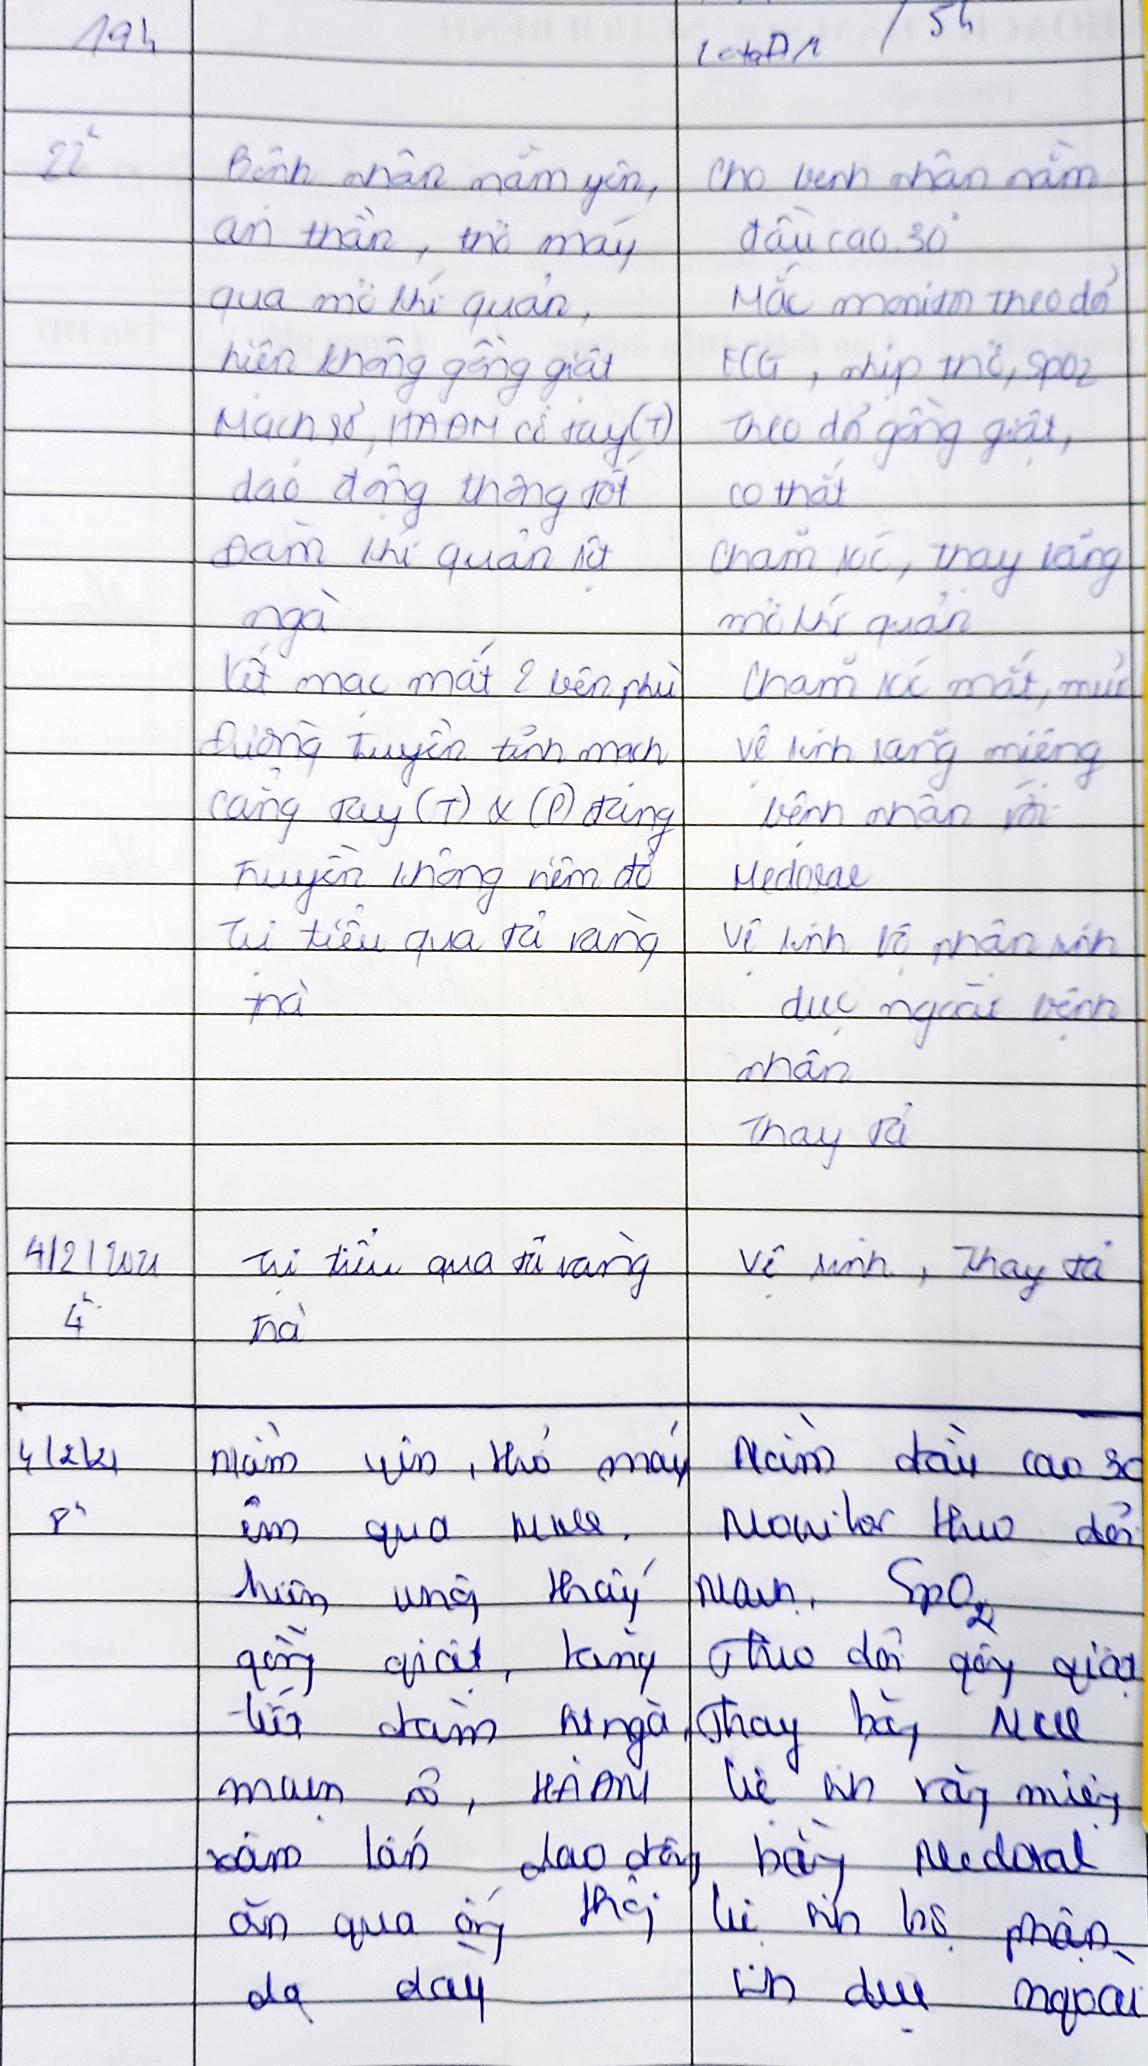 19h
/ 5h
22h
Bệnh nhân nằm yên,
an thần, thở máy
qua mở khí quản,
hiện không gồng giật
Mạch rõ, HAĐM cổ tay (T)
dao động thông tốt
Đàm khí quản ít
ngà
Kết mạc mắt 2 bên phù
Đường truyền tĩnh mạch
cẳng tay (T) & (P) đang
truyền không viêm đỏ
Tự tiểu qua tả vàng
trà
Cho bệnh nhân nằm
đầu cao 30°
Mắc monitor theo dõi
ECG, nhịp thở, SpO2
Theo dõi gồng giật,
co thắt
Chăm sóc, thay băng
mở khí quản
Chăm sóc mắt, mũi
Vệ sinh răng miệng
bệnh nhân với
Medoral
Vệ sinh bộ phận sinh
dục ngoài bệnh
nhân
Thay tả
4/2/2021
4h
Tự tiểu qua tả vàng
trà
Vệ sinh, Thay tả
4/2/21
8h
Nằm yên, thở máy
êm qua MKQ.
hiện không thấy
gồng giật, tăng
tiết đàm ít ngà,
mạch rõ, HAĐM
xâm lấn dao động
ăn qua ống thông
dạ dày
Nằm đầu cao 30
Monitor theo dõi
Mạch, SpO2
Theo dõi gồng giật
Thay băng MKQ
Vệ sinh răng miệng
bằng Medoral
Vệ sinh bộ phận
sinh dục ngoài